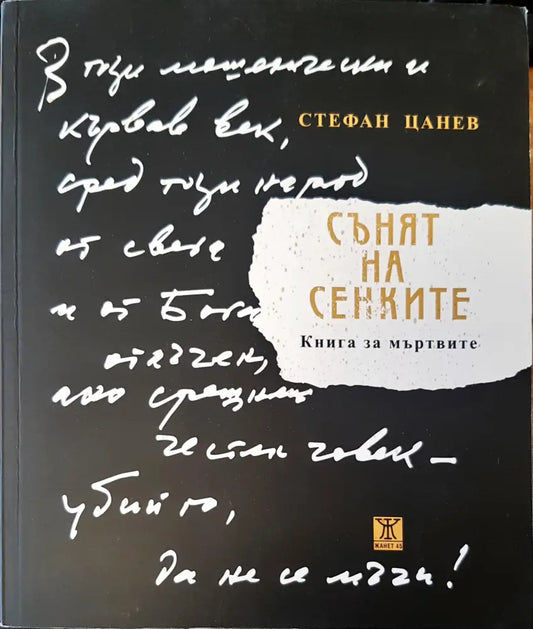 В този мошенически и
кървав век,
СТЕФАН ЦАНЕВ
сред този народ
от света
и от Бога
отлъчен,
СЪНЯТ
НА
СЕНКИТЕ
Книга за мъртвите
ако срещнеш
честен човек –
убий го,
да не се мъчи!
ЖАНЕТ 45